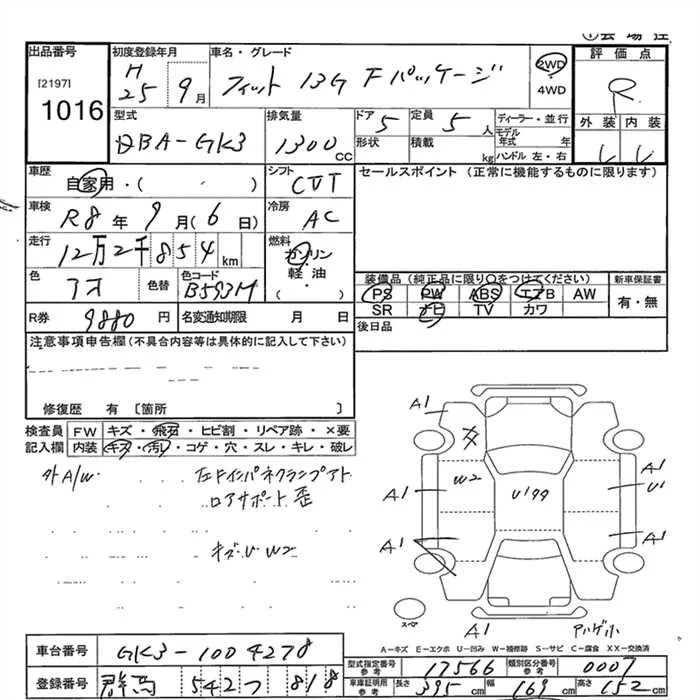 ①会場控
出品番号 初度登録年月 車名・グレード 評価点
[2197] 1016
H25 9月 フィット 13G Fパッケージ 2WD 4WD R
型式 DBA-GK3 排気量 1300 cc ドア 5 形状 定員 5 人 積載 kg ディーラー・並行 モデル年式 年 ハンドル 左・右 外装 内装
車歴 自家用・( ) シフト CVT セールスポイント (正常に機能するものに限ります)
車検 R8年 9月(6日) 冷房 AC
走行 12万2千854km 燃料 ガソリン 軽・油 ( )
色 アオ 色替 色コード B593M 装備品(純正品に限り○をつけてください) 新車保証書
PS PW ABS エアB AW 有・無
SR ナビ TV カワ
R券 9880円 名変通知期限 月 日 後日品
注意事項申告欄(不具合内容等は具体的に記入して下さい)
修復歴 有 [箇所 ]
検査員記入欄 FW キズ・飛石・ヒビ割・リペア跡・×要
内装 キズ・汚レ・コゲ・穴・スレ・キレ・破レ
外A/W 左Fインパネクランプアト
ロアサポート歪
キズU W2
A1
W2 U199 A1 U1
A1
A1 A1
スペ A1
A-キズ E-エクボ U-凹み W-補修跡 S-サビ C-腐食 XX-交換済
車台番号 GK3-1004278
型式指定番号 参考 17566 類別区分番号 参考 0007
登録番号 群馬 542 818
車庫証明用 参考 長さ 395cm 幅 169cm 高さ 152cm